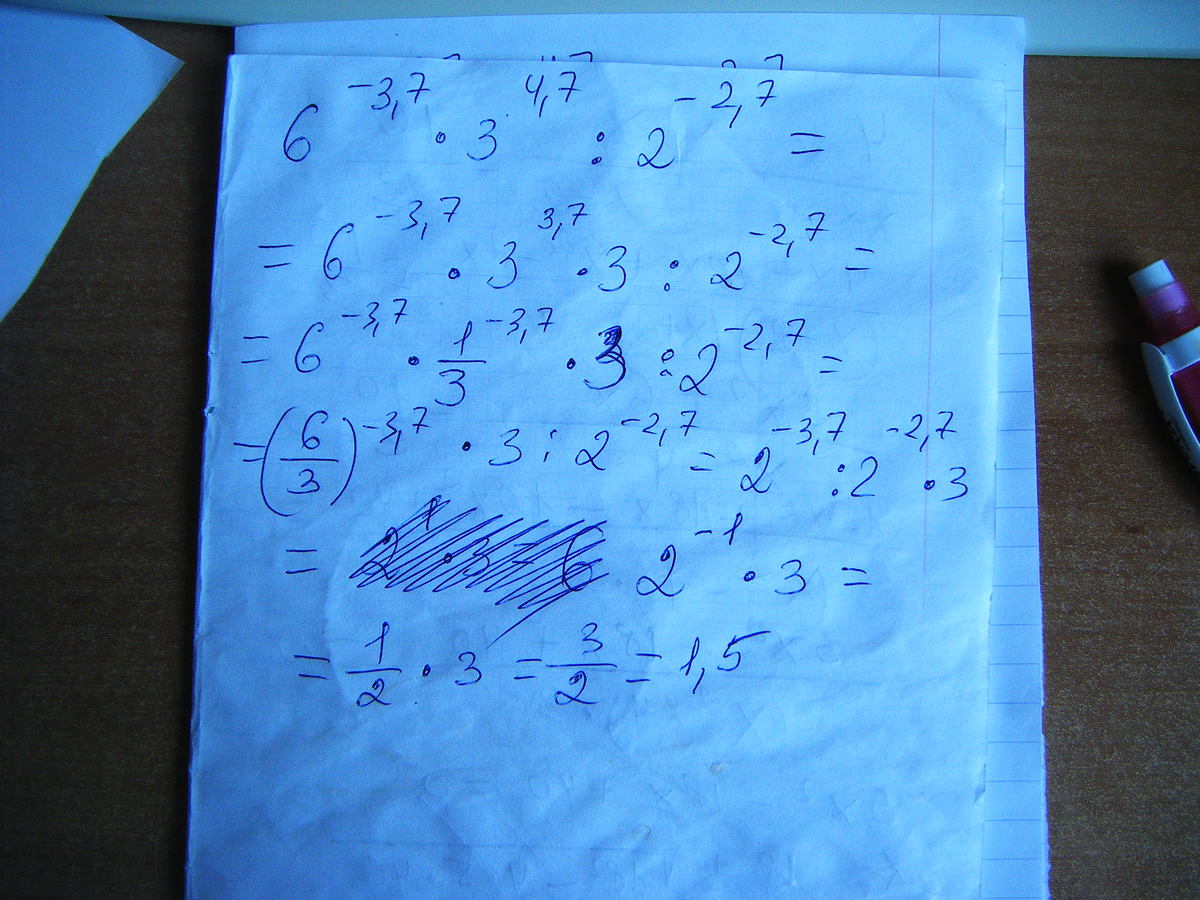 6^{-3,7} · 3^{4,7} : 2^{-2,7} =
= 6^{-3,7} · 3^{3,7} · 3 : 2^{-2,7} =
= 6^{-3,7} · \frac{1}{3}^{-3,7} · 3 : 2^{-2,7} =
= (\frac{6}{3})^{-3,7} · 3 : 2^{-2,7} = 2^{-3,7} : 2^{-2,7} · 3
= 2^{-1} · 3 =
= \frac{1}{2} · 3 = \frac{3}{2} = 1,5